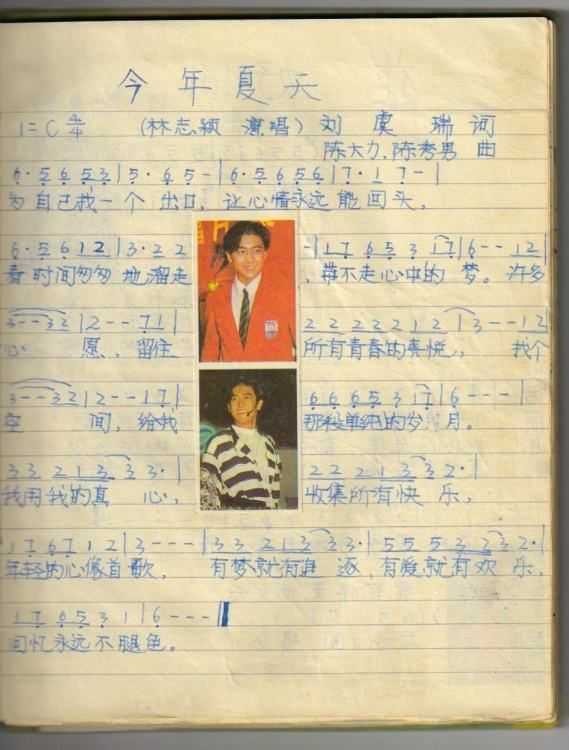 今年夏天
1=C 4/4 (林志颖 演唱) 刘虞瑞 词
陈大力、陈秀男 曲
6·5 6 5 3 | 5·6 5 - | 6·5 6 5 6 | 7·1 7 - |
为自己找一个出口，让心情永远能回头，
6·5 6 1 2 | 3·2 2 - | 1 7 6 5 3 1 7 | 6 - - 1 2 |
看时间匆匆地溜走，带不走心中的梦。许多
3 - - 3 2 | 2 - - 7 1 | 2 2 2 2 2 1 2 1 | 3 - - 1 2 |
心愿，留住所有青春的喜悦，找个
3 - - 3 2 | 2 - - 1 7 | 6 6 6 5 3 1 7 | 6 - - - |
空间，给我那段单纯的岁月。
3 3 2 2 1 3 3 3· | 2 2 2 1 3 3 2· |
我用我的真心，收集所有快乐，
1 7 6 7 1 2 | 3 - - - | 3 3 2 2 1 3 3 3· | 5 5 5 5 3 2 3 2· |
年轻的心像首歌，有梦就有追逐，有爱就有欢乐，
1 7 6 5 3 1 | 6 - - - ‖
回忆永远不腿色。